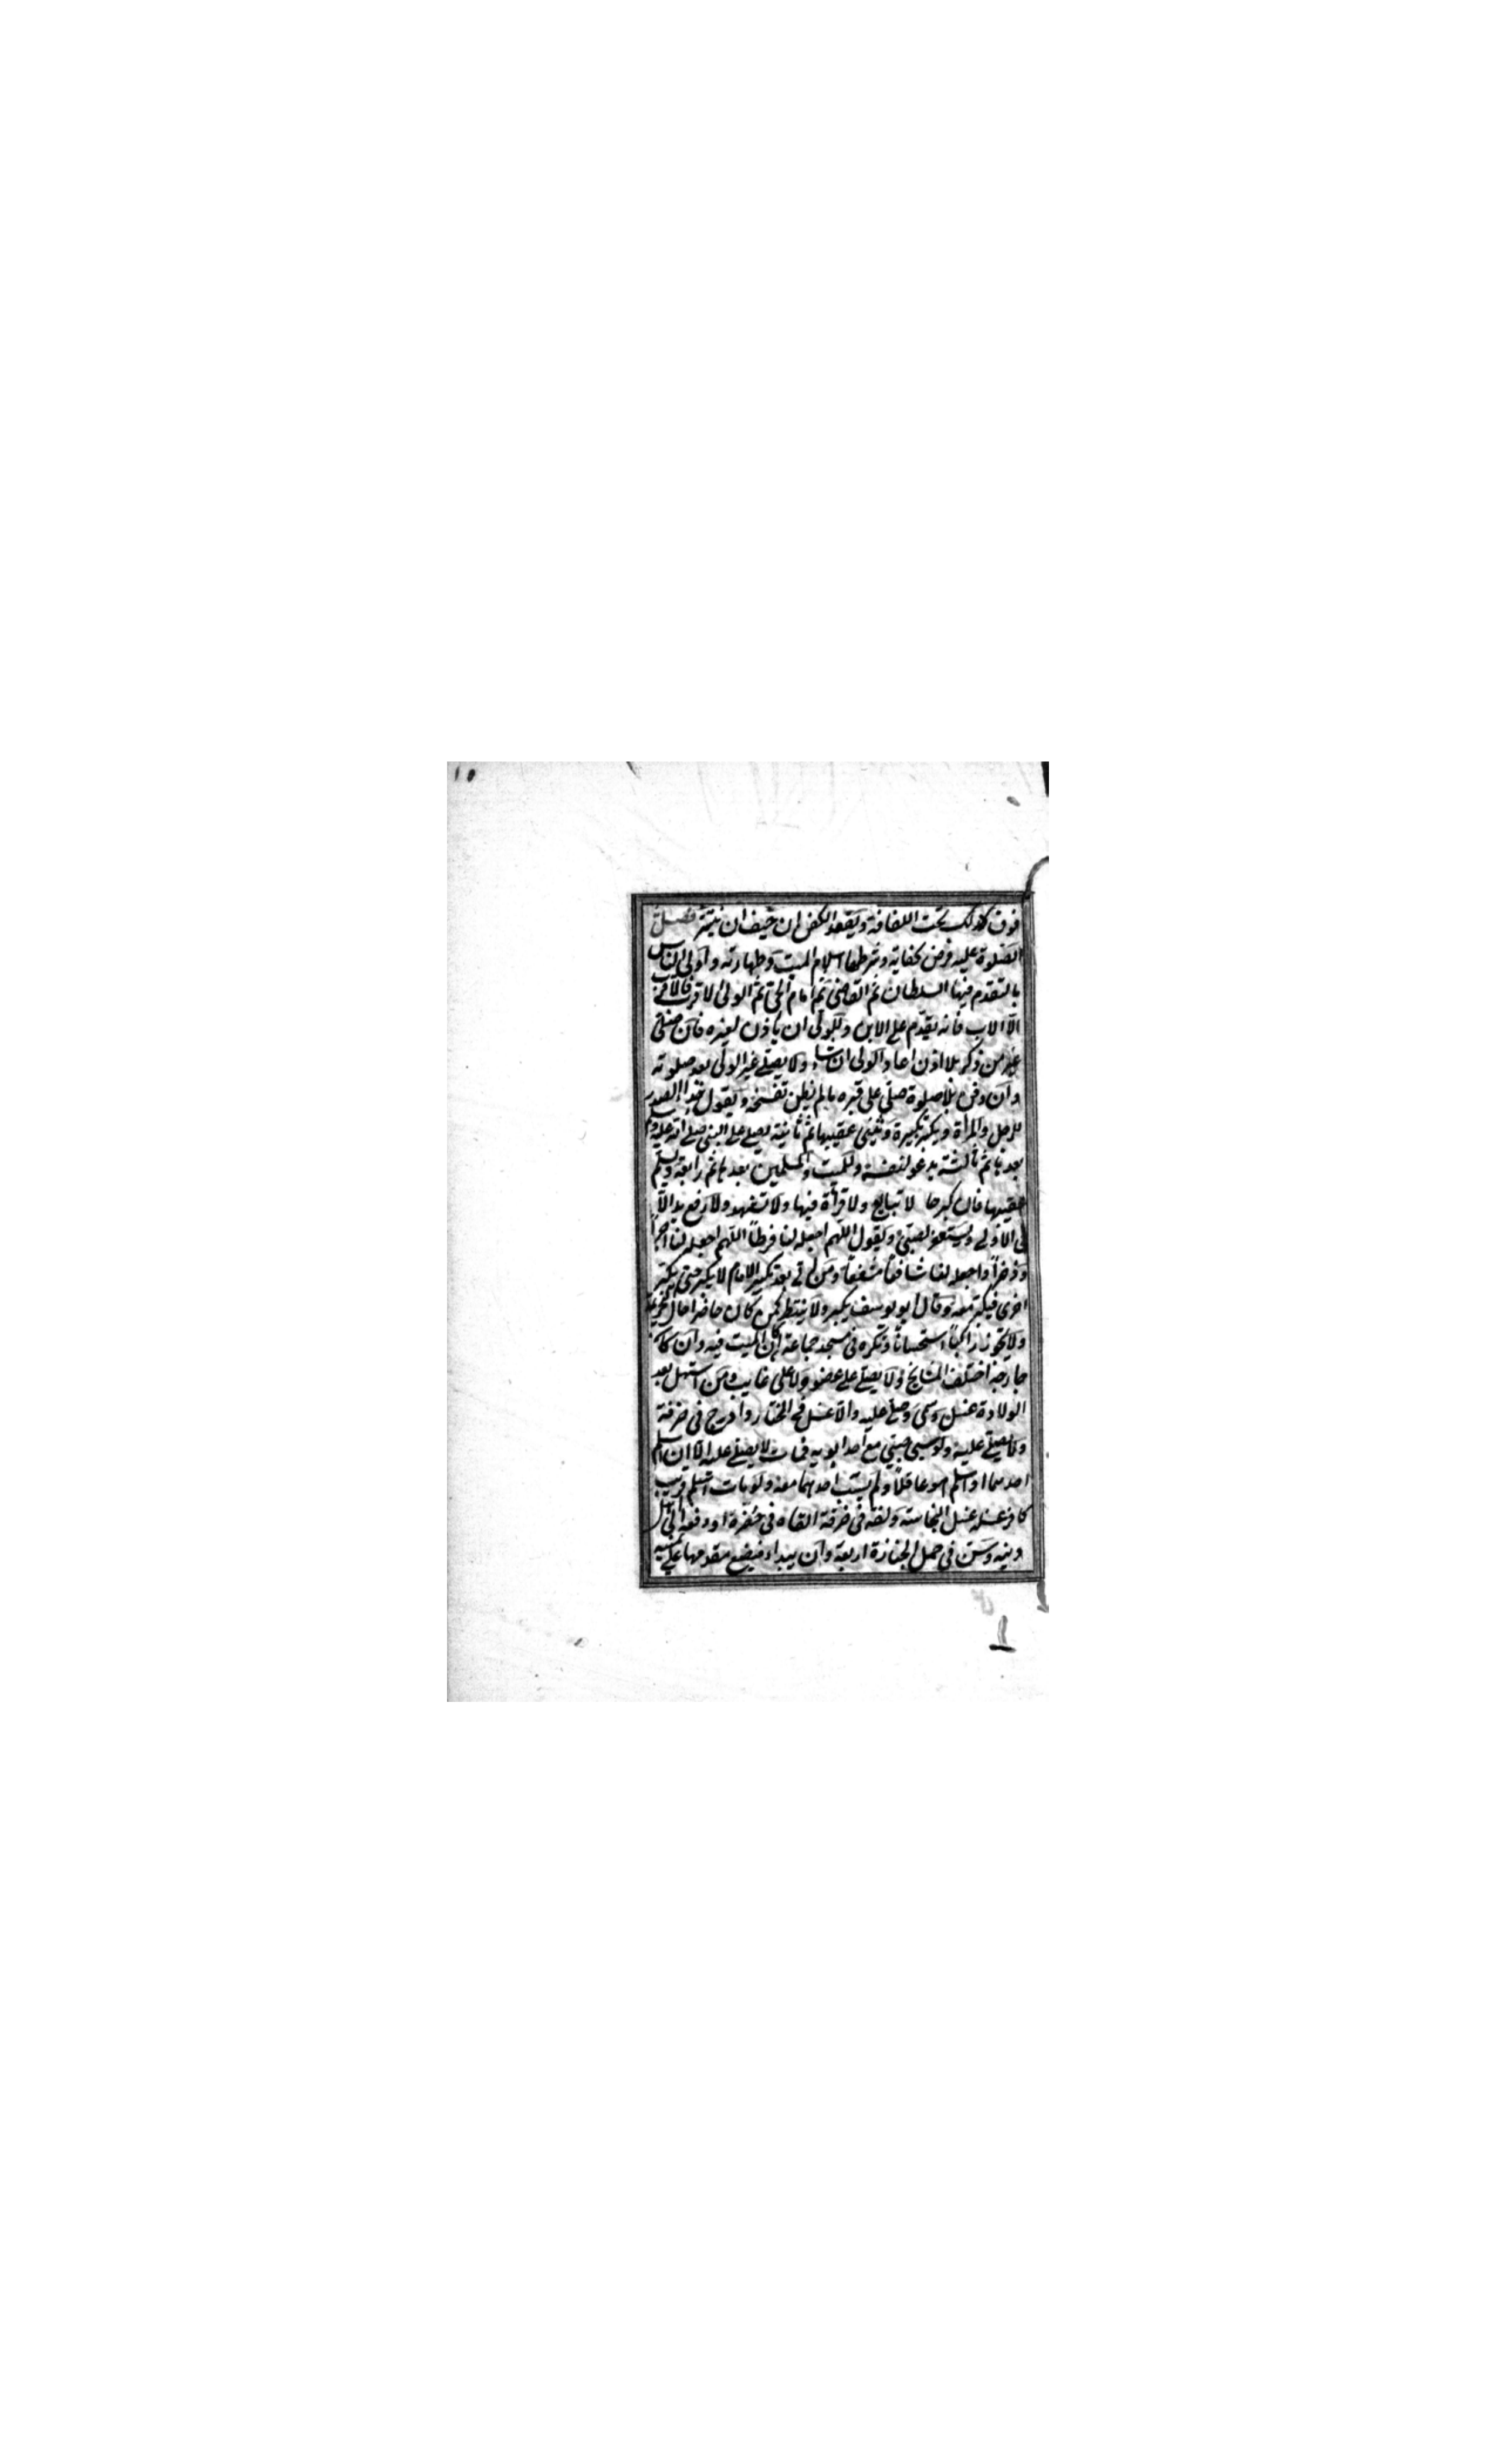 فوق ذلك تحت اللفافة ويعقد الكفن ان خيف ان ينتشر فصل
الصلوة عليه فرض كفاية وشرطها اسلام الميت وطهارته واولى الناس
بالتقدم فيها السلطان ثم القاضى ثم امام الحى ثم الولى الاقرب فالاقرب
الا الاب فانه يقدم على الابن وللولى ان يأذن لغيره فان صلى
غير من ذكر بلا اذن اعاد الولى ان شاء ولا يصلى غير الولى بعد صلوته
وان دفن بلا صلوة صلى على قبره ما لم يظن تفسخه ويقوم حذاء الصدر
للرجل والمرأة ويكبر تكبيرة ويثنى عقيبها ثم ثانية يصلى على النبى صلى الله عليه وسلم
بعدها ثم ثالثة يدعو لنفسه وللميت والمسلمين بعدها ثم رابعة ويسلم
عقيبها فان كبر خا لا تتابع ولا قرأة فيها ولا تشهد ولا رفع يد الا
فى الاولى ولا يستغفر لصبى ويقول اللهم اجعله لنا فرطا اللهم اجعله لنا اجرا
وذخرا واجعله لنا شافعا مشفعا ومن اتى بعد تكبير الامام لا يكبر حتى يكبر
اخرى فيكبر معه وقال ابو يوسف يكبر ولا ينتظر كمن كان حاضرا حال التحريمة
ولا يجوز راكبا استحسانا وتكره فى مسجد جماعة ان كان الميت فيه وان كان
خارجه اختلف المشايخ ولا يصلى على عضو ولا على غايب ومن استهل بعد
الولادة غسل وسمى وصلى عليه والا غسل فى المختار وادرج فى خرقة
ولا يصلى عليه ولو سبى صبى مع احد ابويه فمات لا يصلى عليه الا ان اسلم
احدهما او اسلم هو عاقلا ولم يسب احدهما معه ولو مات لمسلم قريب
كافر غسله غسل النجاسة ولفه فى خرقة القاه فى حفرة او دفعه الى اهل
دينه وسن فى حمل الجنازة اربعة وان يبدأ فيضع مقدمها على يمينه